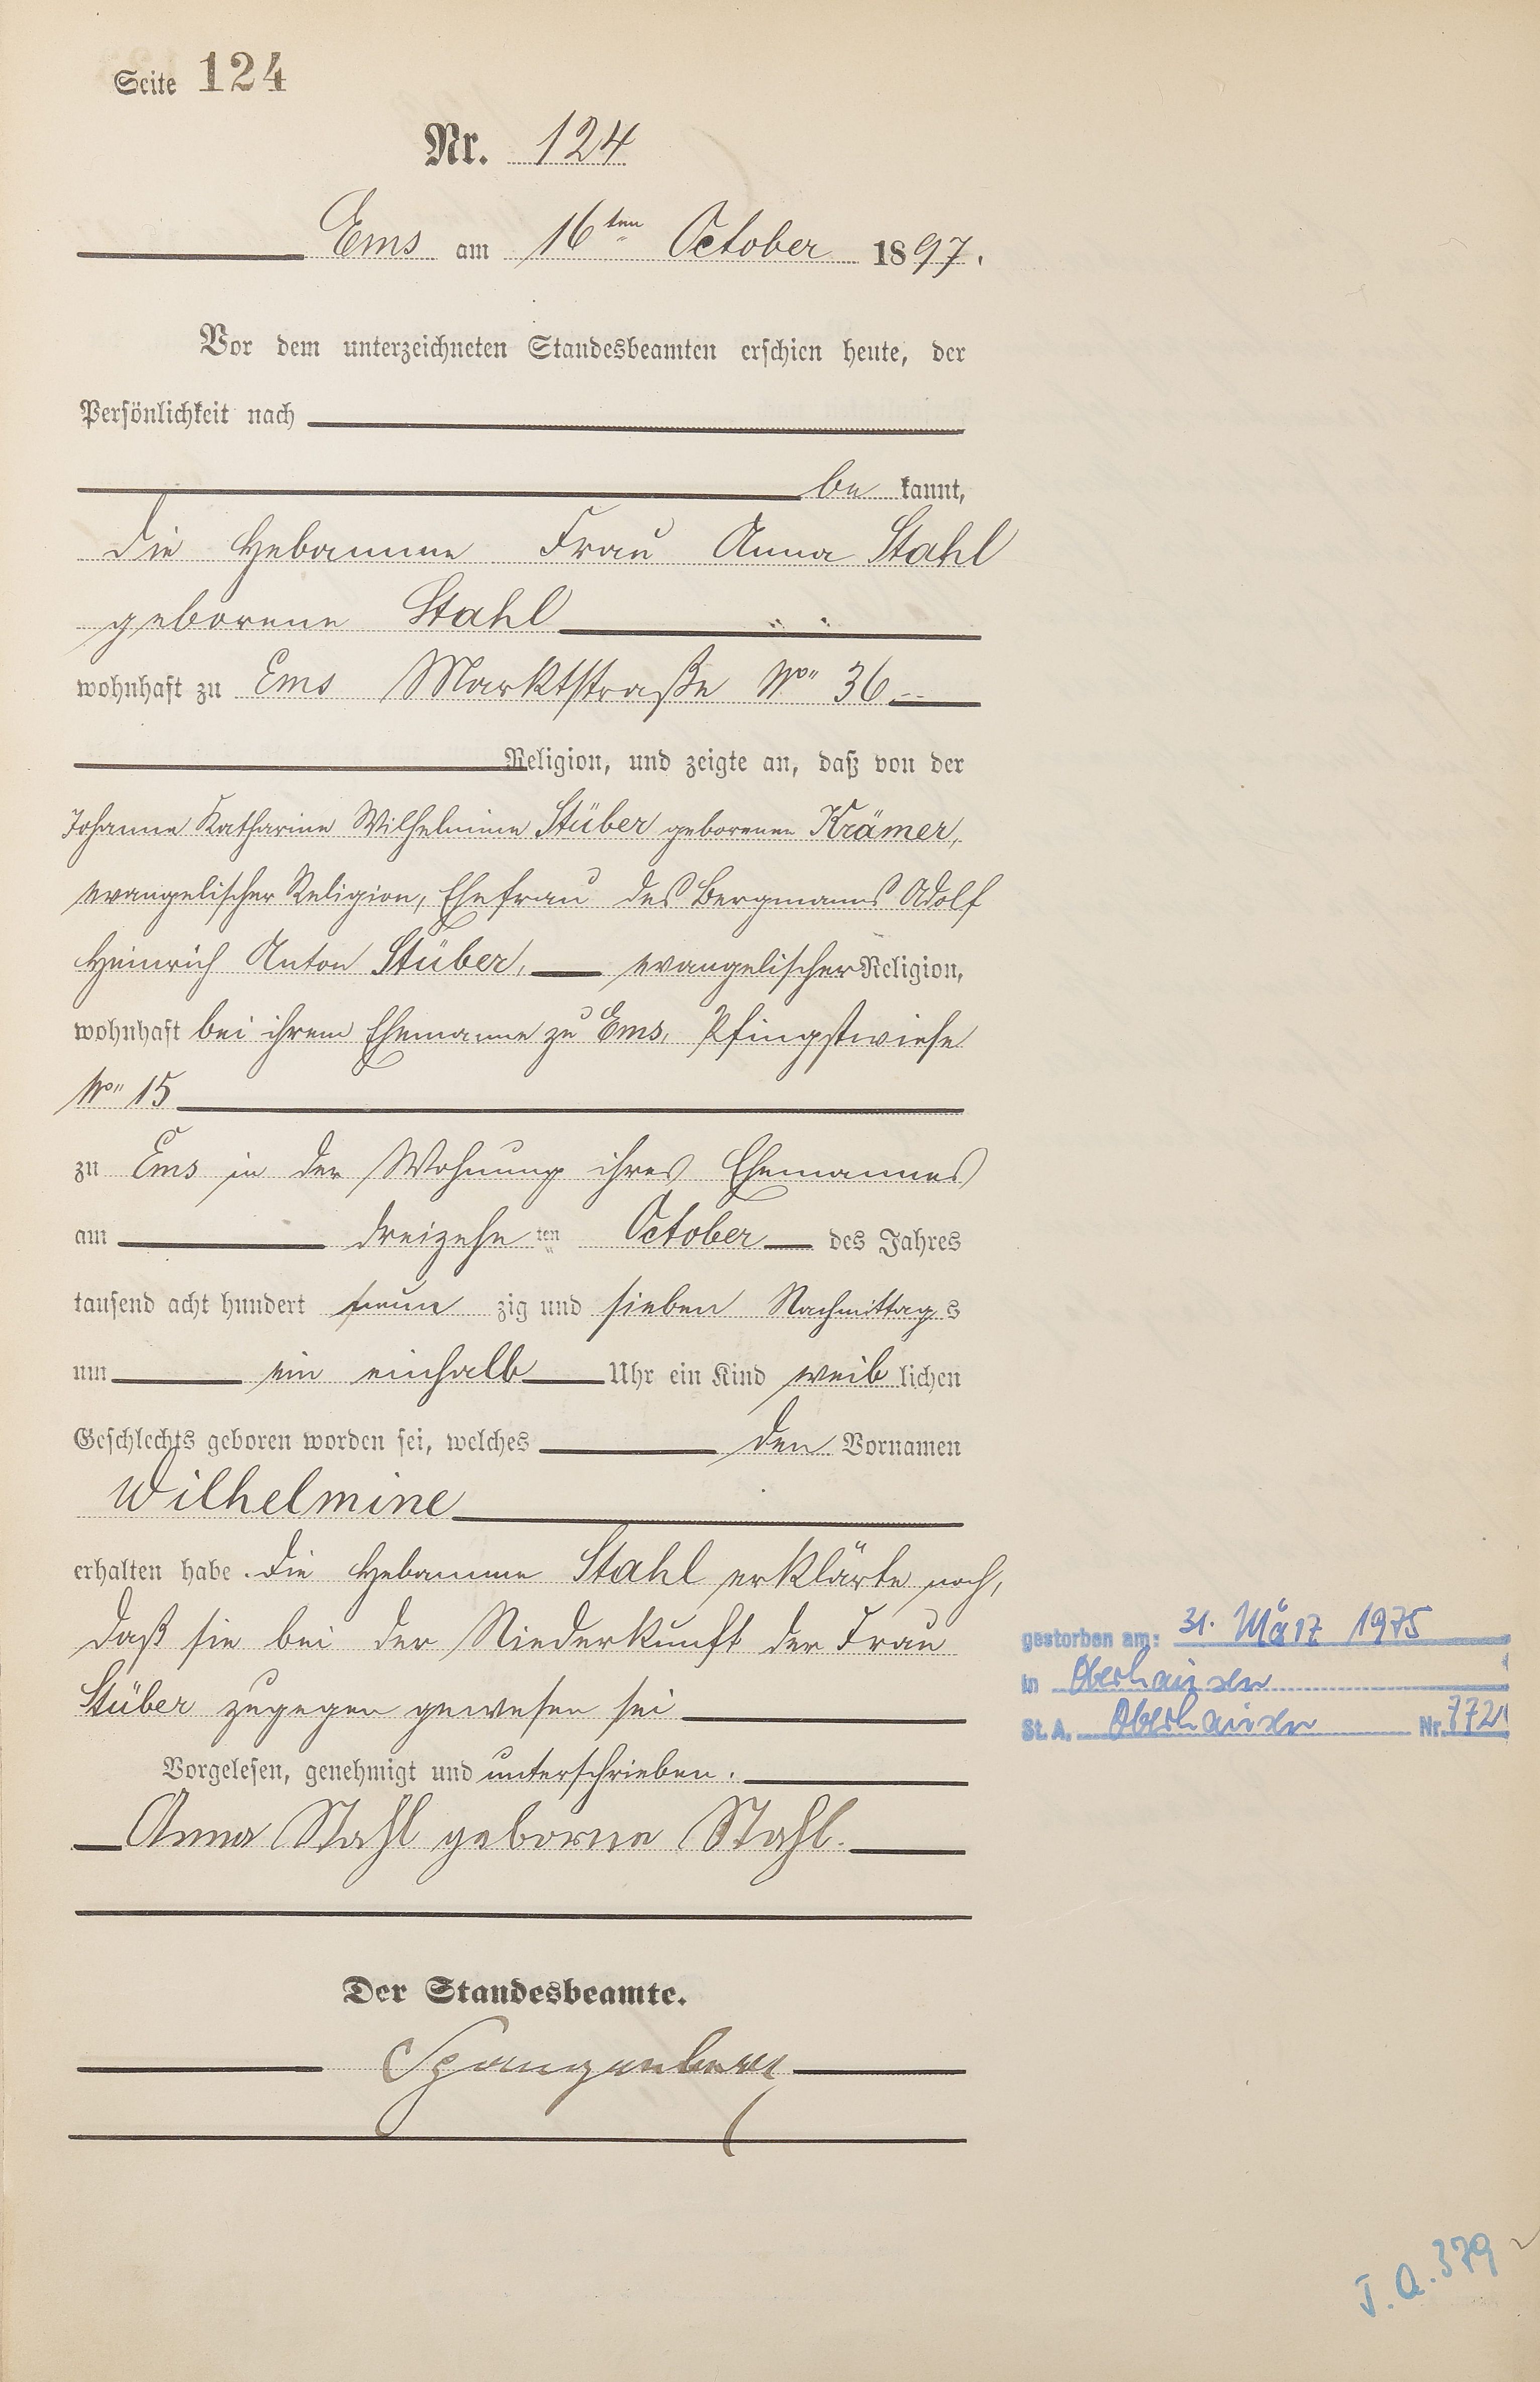 Seite 124
Nr. 124
Ems am 16ten October 1897.
Vor dem unterzeichneten Standesbeamten erschien heute, der
Persönlichkeit nach
be kannt,
die Hebamme Frau Anna Stahl
geborene Stahl
wohnhaft zu Ems Marktstraße No 36
Religion, und zeigte an, daß von der
Johanne Katharine Wilhelmine Stüber geborenen Krämer,
evangelischer Religion, Ehefrau des Bergmanns Adolf
Heinrich Anton Stüber, evangelischer Religion,
wohnhaft bei ihrem Ehemanne zu Ems, Pfingstwiese
No 15
zu Ems in der Wohnung ihres Ehemannes
am dreizehn ten October des Jahres
tausend acht hundert neun zig und sieben Nachmittag s
um ein einhalb Uhr ein Kind weib lichen
Geschlechts geboren worden sei, welches den Vornamen
Wilhelmine
erhalten habe. Die Hebamme Stahl erklärte noch,
daß sie bei der Niederkunft der Frau
Stüber zugegen gewesen sei
Vorgelesen, genehmigt und unterschrieben.
Anna Stahl geborne Stahl.
Der Standesbeamte.
Spangenberg
gestorben am: 31. März 1975
in Oberhausen
St. A. Oberhausen Nr. 772
J. A. 379